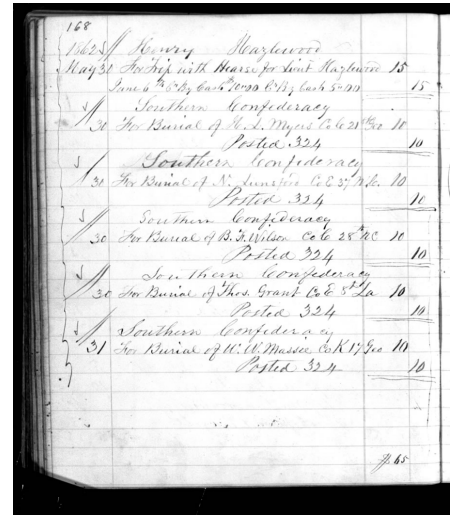 168
1862 Henry Hazlewood
May 31 For Trip with Hearse for Lieut Hazlewood 15
June 6th Cr By Cash 10.00 Cr By Cash 5.00 15
Southern Confederacy
30 For Burial of H. S. Myers Co C 21st Geo 10
Posted 324 10
Southern Confederacy
30 For Burial of N. Lunsford Co E 37 N.C. 10
Posted 324 10
Southern Confederacy
30 For Burial of B. F. Wilson Co C 28th NC 10
Posted 324 10
Southern Confederacy
30 For Burial of Thos. Grant Co E 5th La 10
Posted 324 10
Southern Confederacy
31 For Burial of W. W. Massee Co K 17 Geo 10
Posted 324 10
$65